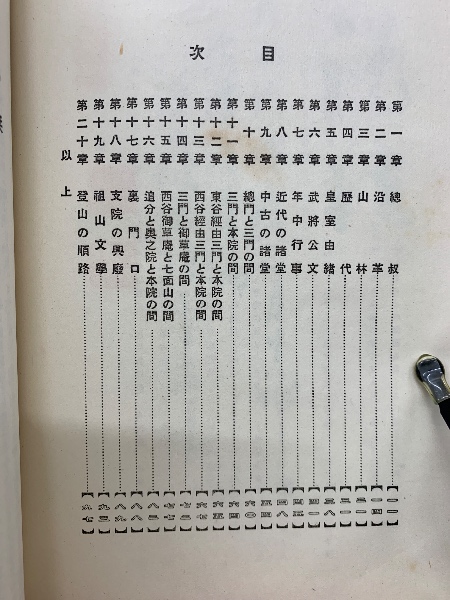 目次
第一章 總叙
第二章 沿革
第三章 山林
第四章 歷代
第五章 皇室由緒
第六章 武將公文
第七章 年中行事
第八章 近代の諸堂
第九章 中古の諸堂
第十章 總門と三門の間
第十一章 三門と本院の間
第十二章 東谷經由三門と本院の間
第十三章 西谷經由三門と本院の間
第十四章 三門と御草庵の間
第十五章 西谷御草庵と七面山の間
第十六章 追分と奥之院と本院の間
第十七章 裏門口
第十八章 支院の興廢
第十九章 祖山文學
第二十章 登山の順路
以上